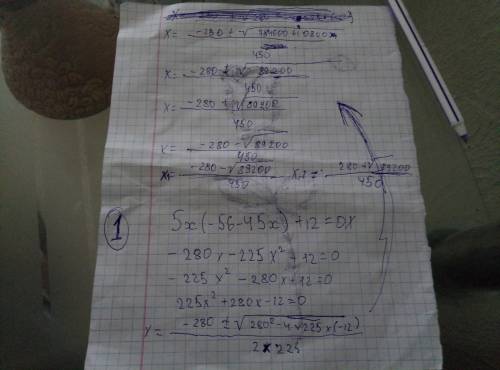 x = (-280 ± √(78400+10800)) / 450
x = (-280 ± √89200) / 450
x = (-280 ± √89200) / 450
x = (-280 - √89200) / 450
x₁ = (-280 - √89200) / 450 x₂ = (280 + √89200) / 450
1 5x(-56-45x)+12=0x
-280x-225x²+12=0
-225x²-280x+12=0
225x²+280x-12=0
x = (-280 ± √(280²-4·225x(-12))) / 2x225